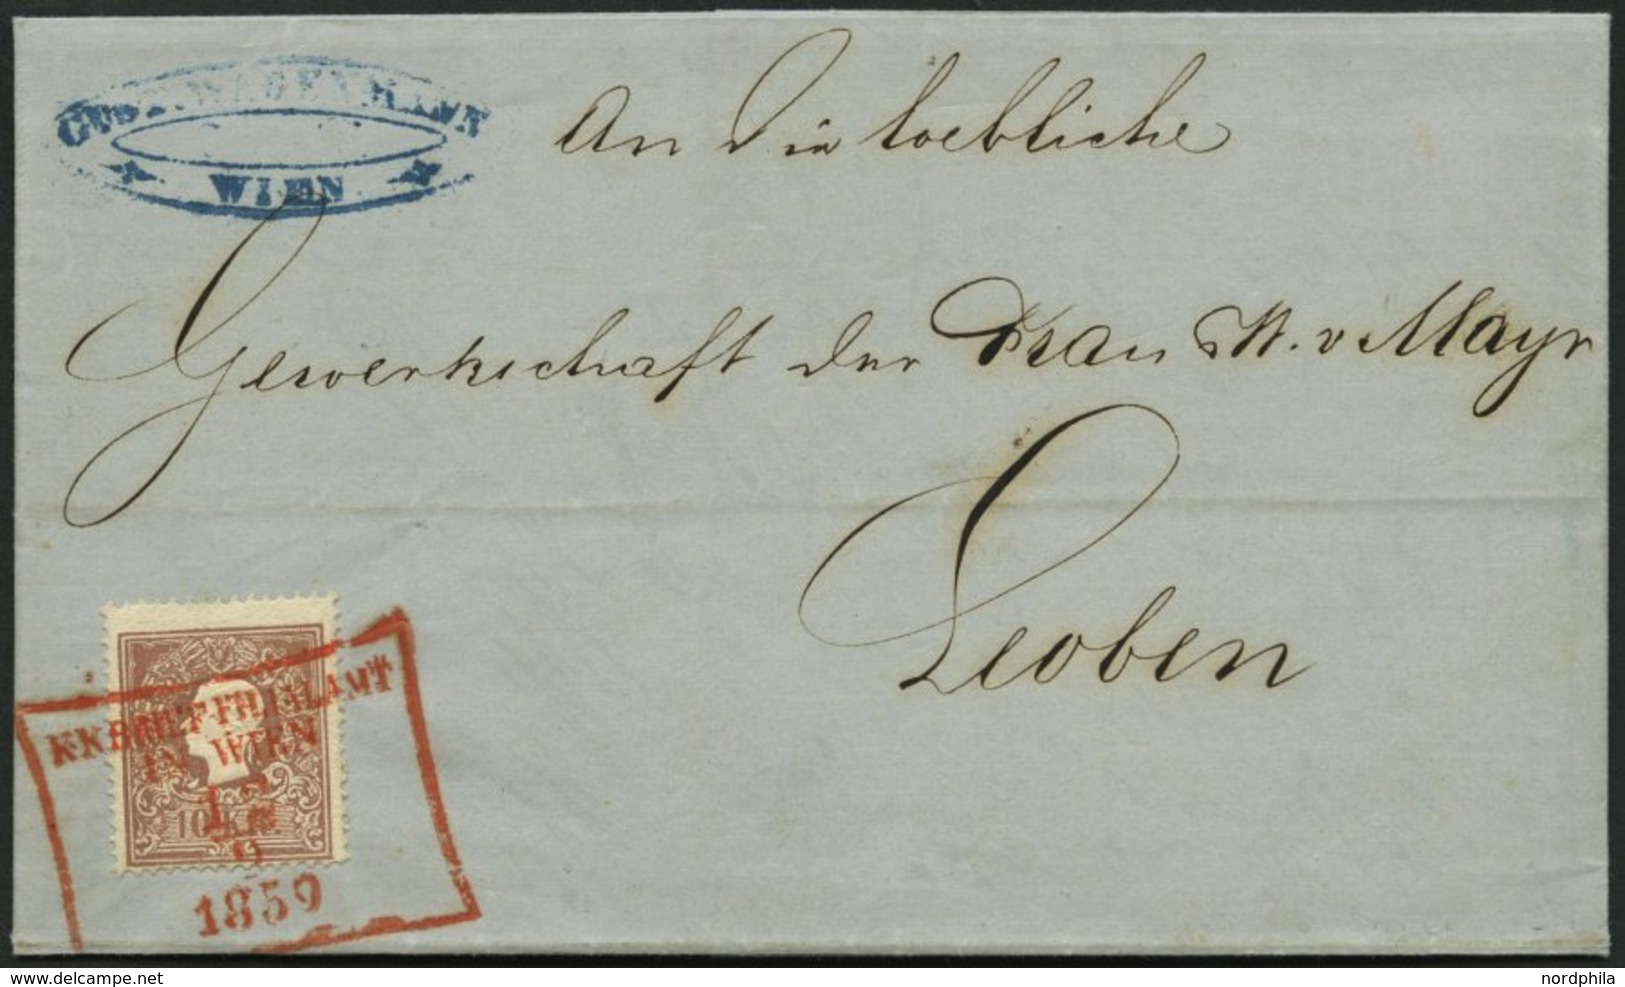 WIEN
An die loebliche
Gewerkschaft der Frau M. v Mayr
Leoben
K.K.BRIEF-FILIALAMT
IN WIEN
12
9
1859
10 Kr.
delcampe.net
nordphila